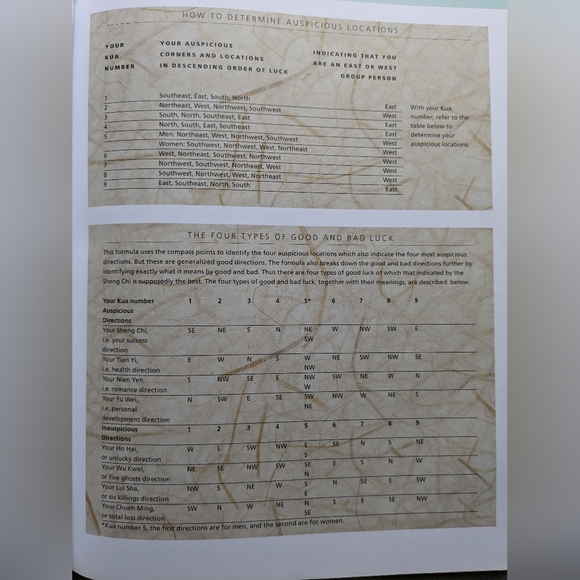 HOW TO DETERMINE AUSPICIOUS LOCATIONS
YOUR
KUA
NUMBER
YOUR AUSPICIOUS
CORNERS AND LOCATIONS
IN DESCENDING ORDER OF LUCK
INDICATING THAT YOU
ARE AN EAST OR WEST
GROUP PERSON
1 Southeast, East, South, North East
2 Northeast, West, Northwest, Southwest West
3 South, North, Southeast, East East
4 North, South, East, Southeast East
5 Men: Northeast, West, Northwest, Southwest West
Women: Southwest, Northwest, West, Northeast West
6 West, Northeast, Southwest, Northwest West
7 Northwest, Southwest, Northeast, West West
8 Southwest, Northwest, West, Northeast West
9 East, Southeast, North, South East
With your Kua
number, refer to the
table below to
determine your
auspicious locations.
THE FOUR TYPES OF GOOD AND BAD LUCK
This formula uses the compass points to identify the four auspicious locations which also indicate the four most auspicious
directions. But these are generalized good directions. The formula also breaks down the good and bad directions further by
identifying exactly what it means by good and bad. Thus there are four types of good luck of which that indicated by the
Sheng Chi is supposedly the best. The four types of good and bad luck, together with their meanings, are described below.
Your Kua number 1 2 3 4 5* 6 7 8 9
Auspicious
Directions
Your Sheng Chi, SE NE S N NE W NW SW E
i.e. your success SW
direction
Your Tien Yi, E W N S W NE SW NW SE
i.e. health direction NW
Your Nien Yen, S NW SE E NW SW NE W N
i.e. romance direction W
Your Fu Wei, N SW E SE SW NW W NE S
i.e. personal NE
development direction
Inauspicious 1 2 3 4 5 6 7 8 9
Directions
Your Ho Hai, W E SW NW E SE N S NE
or unlucky direction S
Your Wu Kwei, NE SE NW SW SE E S N W
or five ghosts direction N
Your Lui Sha, NW S NE W S N SE E SW
or six killings direction E
Your Chueh Ming, SW N W NE N S E SE NW
or total loss direction SE
*Kua number 5, the first directions are for men, and the second are for women.